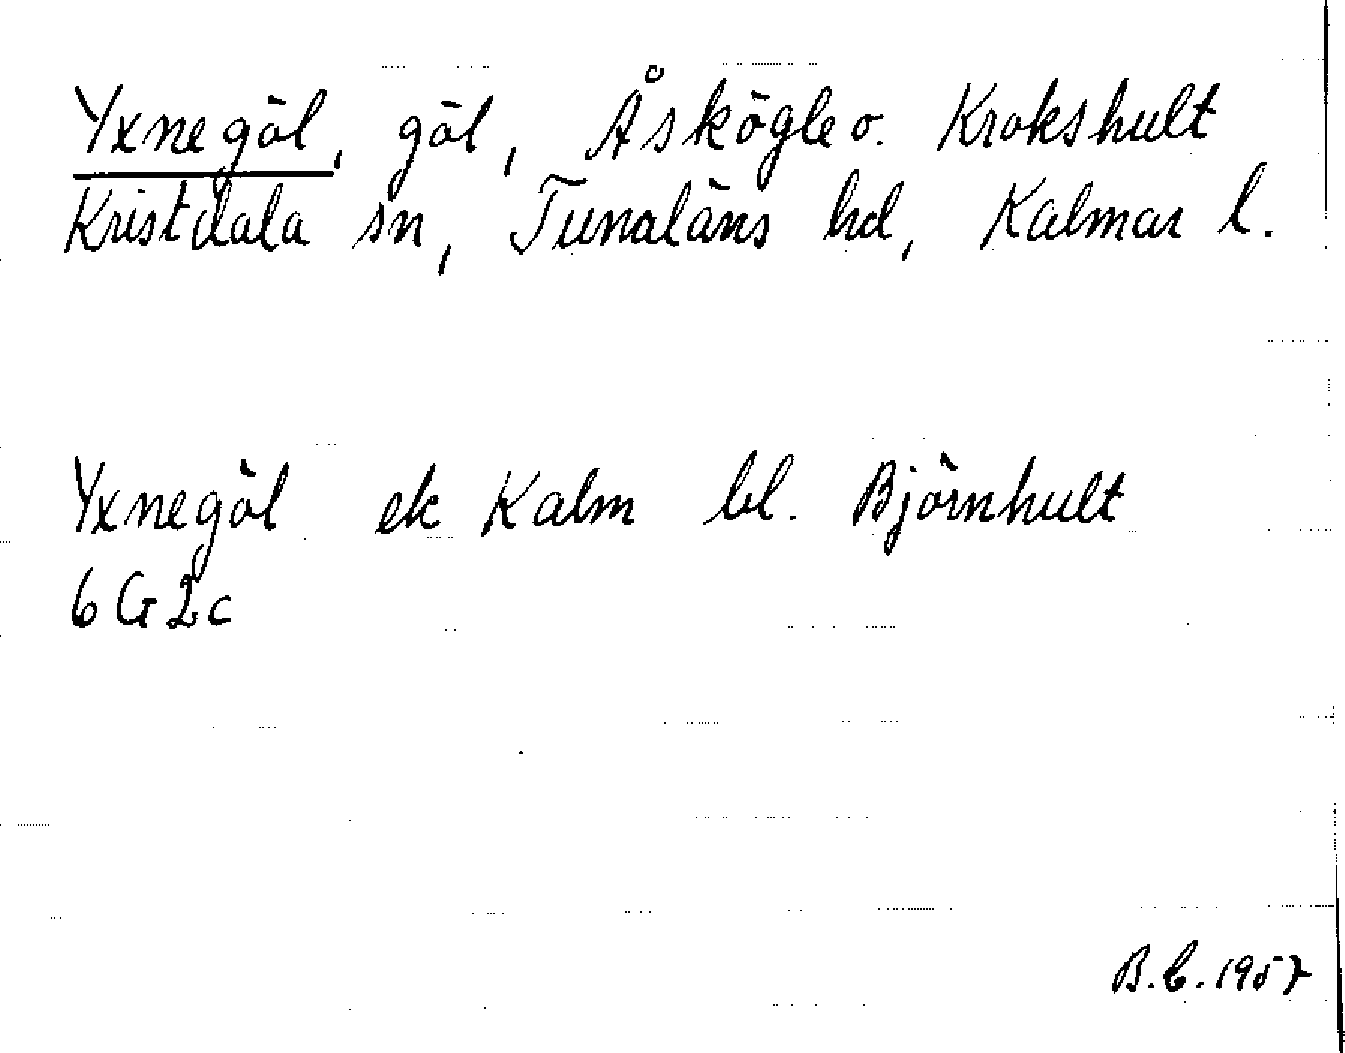 Yxnegöl, göl, Åskögle o. Krokshult
Kristdala sn, Tunaläns hd, Kalmar l.
Yxnegöl ek Kalm bl. Björnhult
6 G 2 c
B.C. 1957